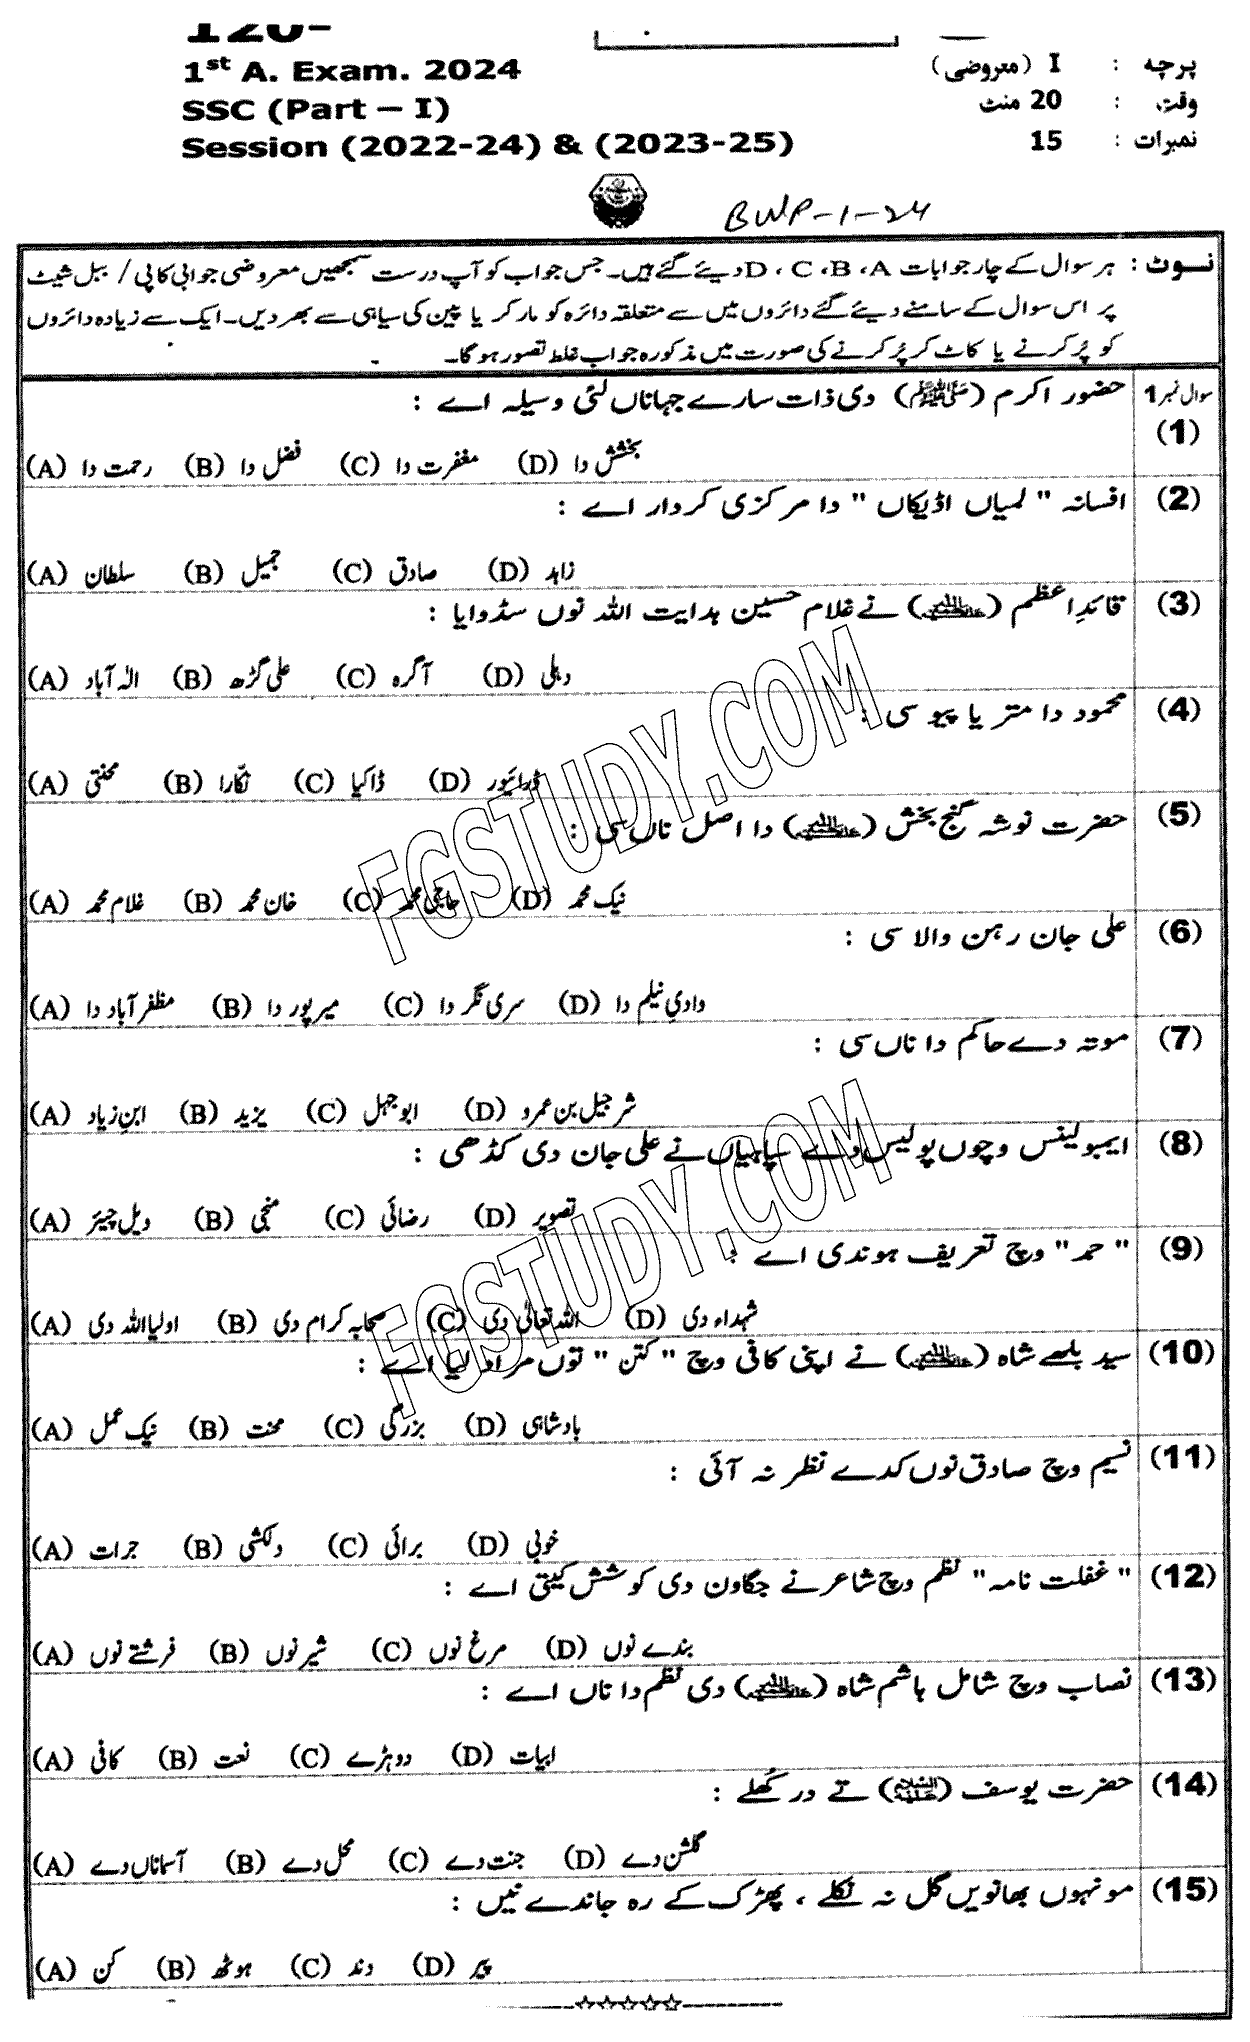 1st A. Exam. 2024
SSC (Part – I)
Session (2022-24) & (2023-25)
پرچہ : I (معروضی)
وقت : 20 منٹ
نمبرات : 15
BWP-1-24
نوٹ : ہر سوال کے چار جوابات A، B، C، D دیئے گئے ہیں۔ جس جواب کو آپ درست سمجھیں معروضی جوابی کاپی / ببل شیٹ
پر اس سوال کے سامنے دیئے گئے دائروں میں سے متعلقہ دائرہ کو مارکر یا پین کی سیاہی سے بھر دیں۔ ایک سے زیادہ دائروں
کو پُر کرنے یا کاٹ کر پُر کرنے کی صورت میں مذکورہ جواب غلط تصور ہو گا۔
سوال نمبر 1
(1) حضور اکرم (ﷺ) دی ذات سارے جہاناں لئی وسیلہ اے :
(A) رحمت دا (B) فضل دا (C) مغفرت دا (D) بخشش دا
(2) افسانہ " لمیاں اڈیکاں " دا مرکزی کردار اے :
(A) سلطان (B) جمیل (C) صادق (D) زاہد
(3) قائدِاعظم (رحمۃ اللہ علیہ) نے غلام حسین ہدایت اللہ نوں سڈوایا :
(A) الٰہ آباد (B) علی گڑھ (C) آگرہ (D) دہلی
(4) محمود دا متریا پیو سی :
(A) محنتی (B) نکارا (C) ڈاکیا (D) ڈرائیور
(5) حضرت نوشہ گنج بخش (رحمۃ اللہ علیہ) دا اصل ناں سی :
(A) غلام محمد (B) خان محمد (C) حاجی محمد (D) نیک محمد
(6) علی جان رہن والا سی :
(A) مظفر آباد دا (B) میرپور دا (C) سری نگر دا (D) وادیِ نیلم دا
(7) موتہ دے حاکم دا ناں سی :
(A) ابنِ زیاد (B) یزید (C) ابوجہل (D) شرجیل بن عمرو
(8) ایمبولینس وچوں پولیس دے سپاہیاں نے علی جان دی کڈھی :
(A) ویل چیئر (B) منجی (C) رضائی (D) تصویر
(9) " حمد " وچ تعریف ہوندی اے :
(A) اولیا اللہ دی (B) صحابہ کرام دی (C) اللہ تعالٰی دی (D) شہداء دی
(10) سید بلھے شاہ (رحمۃ اللہ علیہ) نے اپنی کافی وچ " کتن " توں مراد لیا اے :
(A) نیک عمل (B) محنت (C) بزرگی (D) بادشاہی
(11) نسیم وچ صادق نوں کدے نظر نہ آئی :
(A) جرات (B) دلکشی (C) برائی (D) خوبی
(12) " غفلت نامہ " نظم وچ شاعر نے جگاون دی کوشش کیتی اے :
(A) فرشتے نوں (B) شیر نوں (C) مرغ نوں (D) بندے نوں
(13) نصاب وچ شامل ہاشم شاہ (رحمۃ اللہ علیہ) دی نظم دا ناں اے :
(A) کافی (B) نعت (C) دوہڑے (D) ابیات
(14) حضرت یوسف (علیہ السلام) تے در کُھلے :
(A) آسماناں دے (B) محل دے (C) جنت دے (D) گلشن دے
(15) مونہوں بھانویں گل نہ نکلے ، پھڑک کے رہ جاندے نیں :
(A) کن (B) ہوٹھ (C) دند (D) پیر
FGSTUDY.COM
FGSTUDY.COM